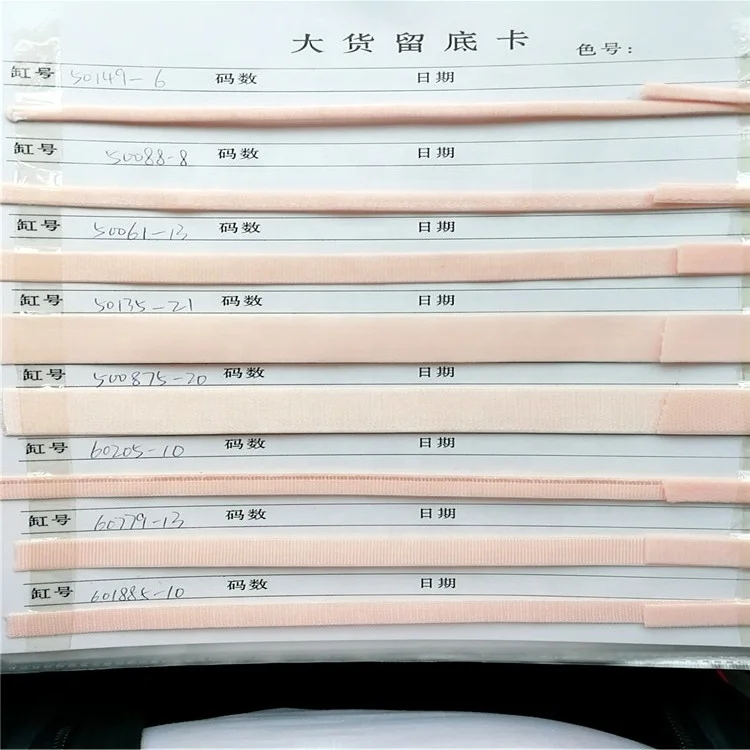 大货留底卡 色号:
缸号 50149-6 码数 日期
缸号 50088-8 码数 日期
缸号 50061-13 码数 日期
缸号 50135-21 码数 日期
缸号 500875-20 码数 日期
缸号 60205-10 码数 日期
缸号 60779-13 码数 日期
缸号 601885-10 码数 日期